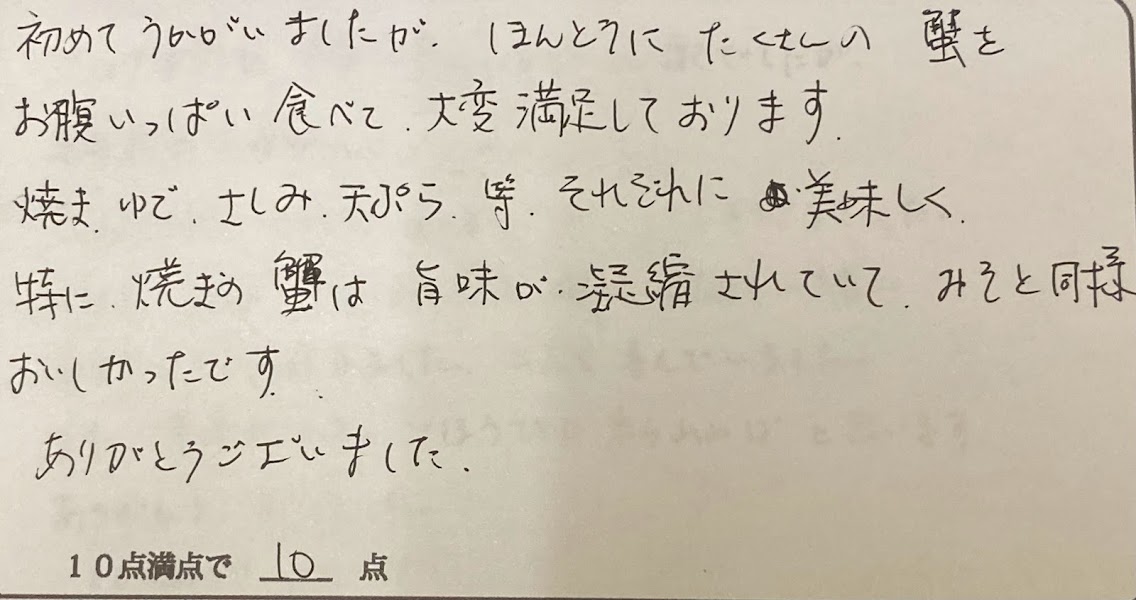 初めてうかがいましたが、ほんとうにたくさんの蟹を
お腹いっぱい食べて、大変満足しております。
焼き、ゆで、さしみ、天ぷら、等、それぞれに美味しく、
特に、焼きの蟹は旨味が凝縮されていて、みそと同様
おいしかったです。
ありがとうございました。
10点満点で 10 点